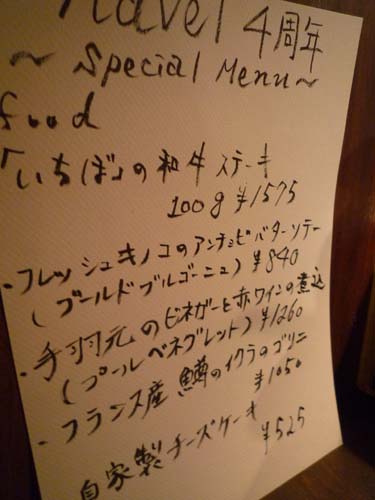 navel 4周年
~ Special Menu ~
food
「いちぼ」の和牛ステーキ
100g ¥1575
・フレッシュキノコのアンチョビバターソテー
(ブールドブルゴーニュ) ¥840
・手羽元のビネガーと赤ワインの煮込
(プールベネグレット) ¥1260
・フランス産 鱒のイクラのブリニ
¥1050
自家製チーズケーキ
¥525